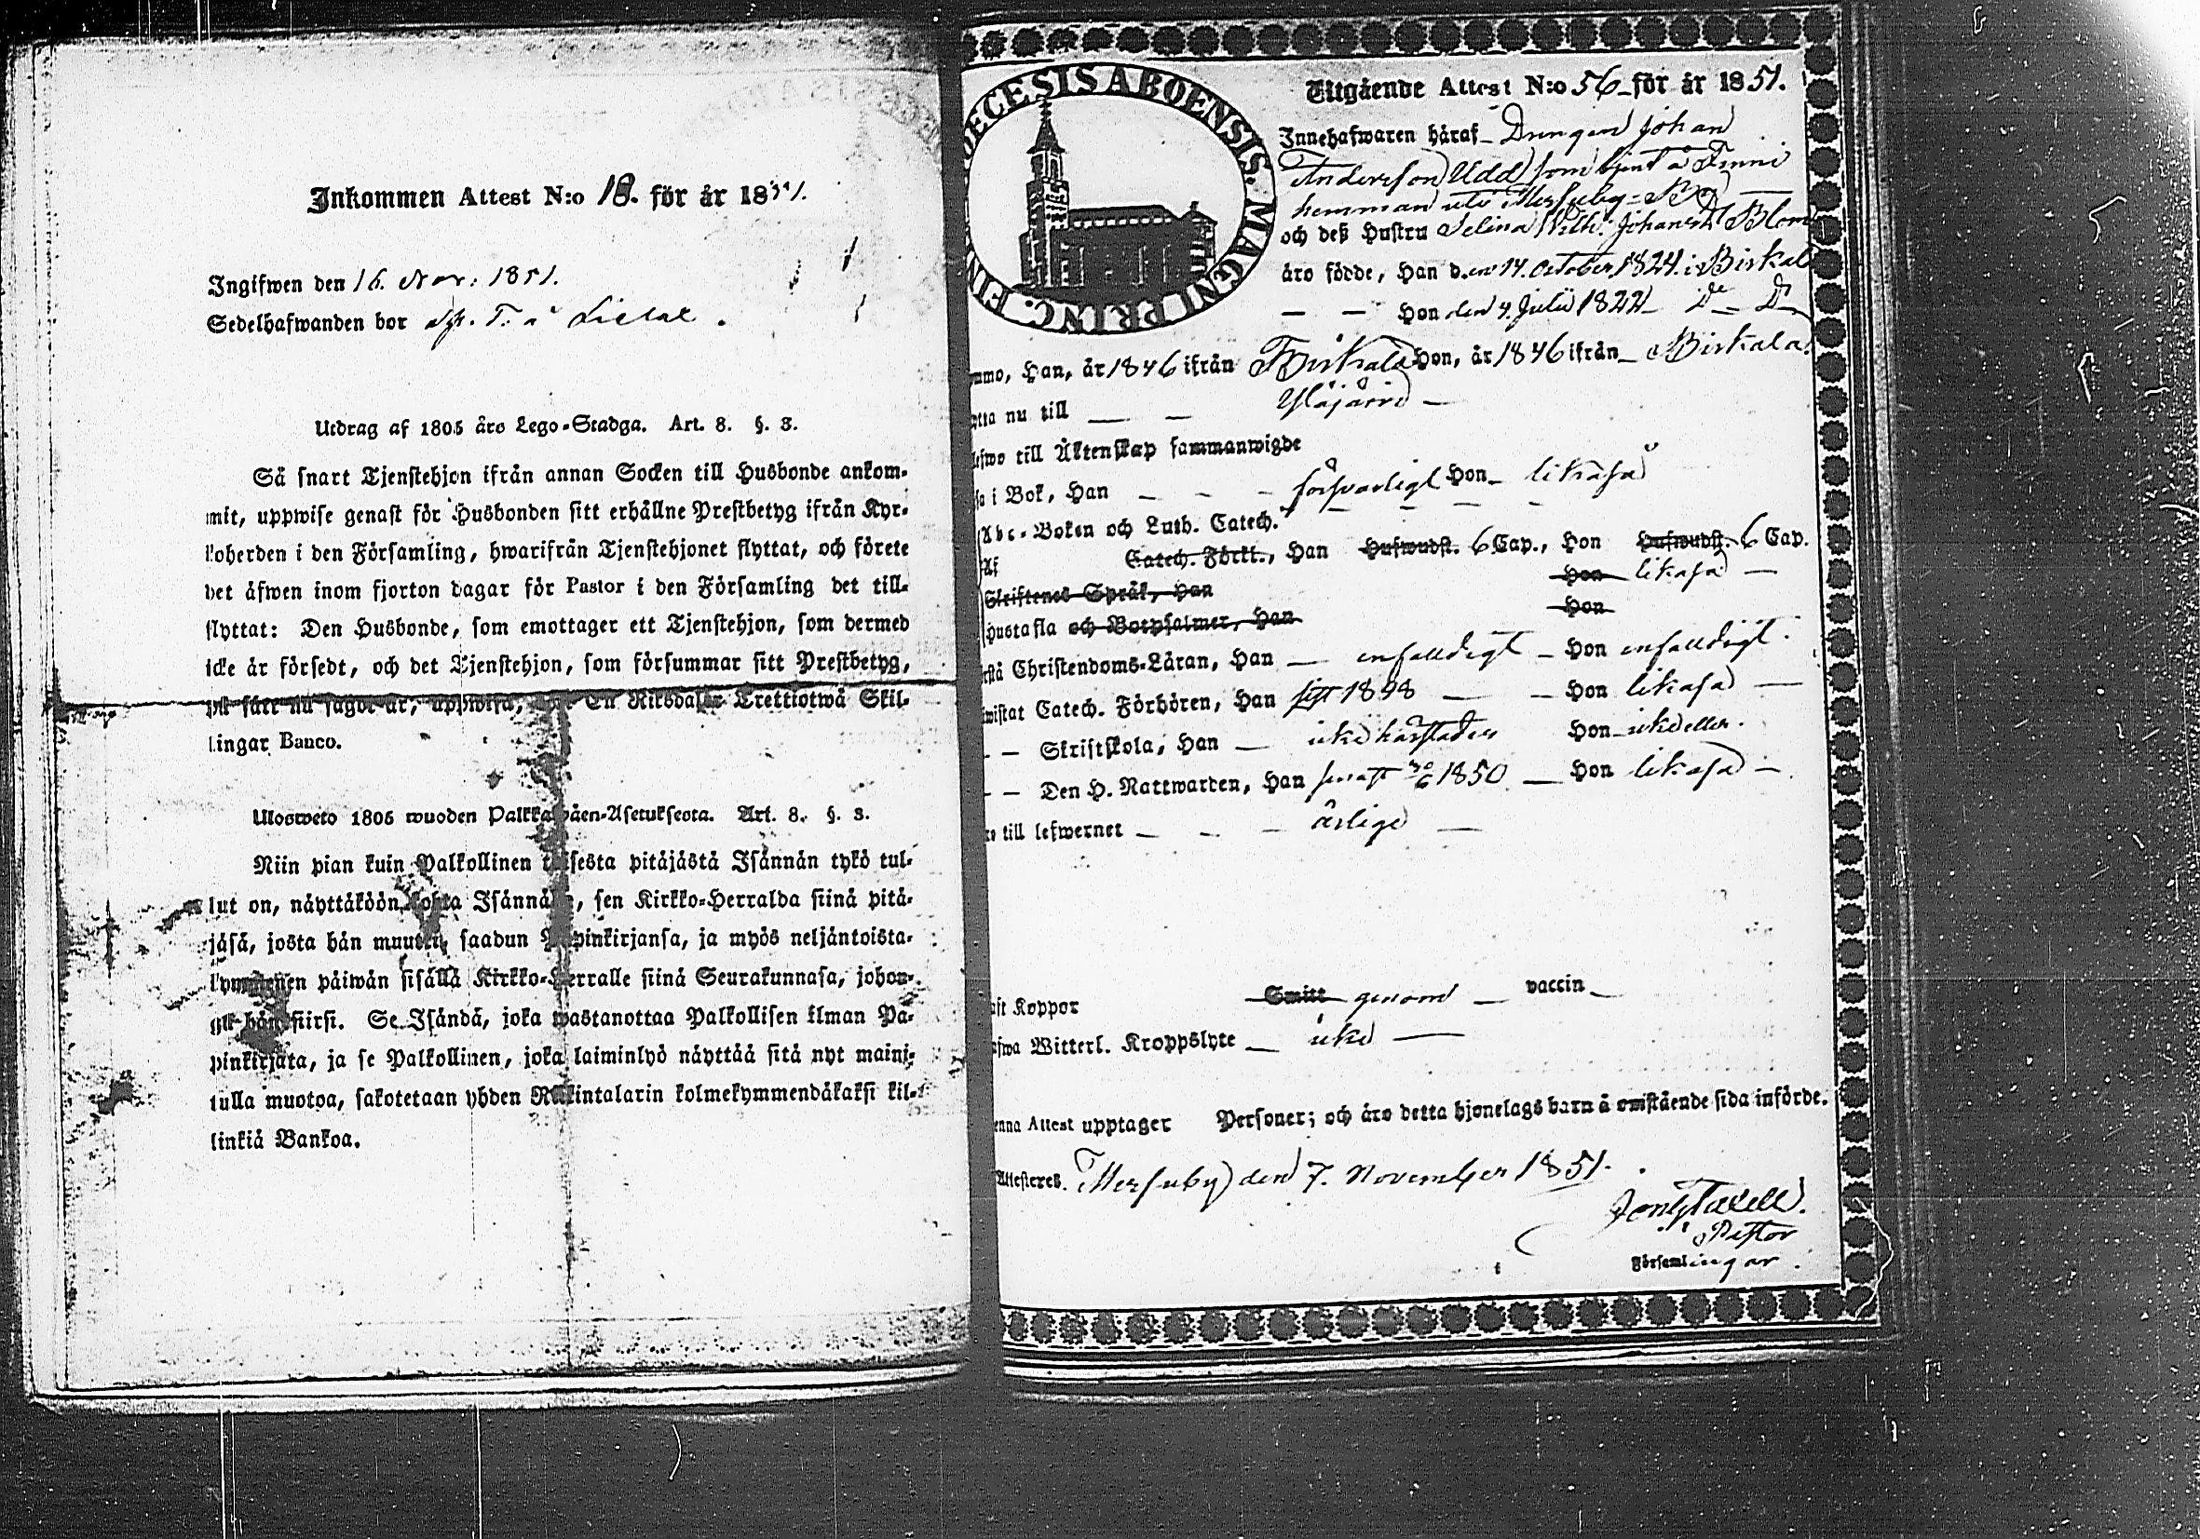 Inkommen Attest N:o 18. för år 1851.
Ingifwen den 16. Nov: 1851.
Sedelhafwanden bor på
Utdrag af 1805 års Lego-Stadga. Art. 8. §. 3.
Så snart Tjenstehjon ifrån annan Socken till Husbonde ankom-
mit, uppwise genast för Husbonden sitt erhållne Prestbetyg ifrån Kyr-
koherden i den Församling, hwarifrån Tjenstehjonet flyttat, och förete
det äfwen inom fjorton dagar för Pastor i den Församling det till-
flyttat: Den Husbonde, som emottager ett Tjenstehjon, som dermed
icke är försedt, och det Tjenstehjon, som försummar sitt Prestbetyg,
på sätt nu sagdt är, uppwisa, En Riksdaler Trettiotwå Skil-
lingar Banco.
Ulosweto 1805 wuoden Palkkawäen-Asetuksesta. Art. 8. §. 3.
Niin pian kuin Palkollinen toisesta pitäjästä Isännän tykö tul-
lut on, näyttäköön kohta Isännälle, sen Kirkko-Herralda siinä pitä-
jäsä, josta hän muutti, saadun Papinkirjansa, ja myös neljäntoista-
kymmenen päiwän sisällä Kirkko-Herralle siinä Seurakunnasa, johon-
ga hän siirsi. Se Isändä, joka wastanottaa Palkollisen ilman Pa-
pinkirjata, ja se Palkollinen, joka laiminlyö näyttää sitä nyt maini-
tulla muotoa, sakotetaan yhden Riikintalarin kolmekymmendäkaksi kil-
linkiä Bankoa.
DIOECESIS ABOENSIS. MAGNI PRINC. FIN
Utgående Attest N:o 56 för år 1851.
Innehafwaren häraf Drengen Johan
Andersson Udd som tjent å Finni
hemman uti Messuby
och deß Hustru Selina Wilh. Johansdr Blom
äro födde, Han d.en 14. October 1824. i Birkala
— — Hon den 4. Julii 1822 — D:o — D:o
mmo, Han, år 1846 ifrån Birkala Hon, år 1846 ifrån Birkala.
ytta nu till — — Ylöjärvi —
lefwo till Äktenskap sammanwigde
sa i Bok, Han — — — försvarligt Hon likaså
Abc-Boken och Luth. Catech. — — — —
Af Catech. Förkl., Han Hufwudst. 6 Cap., Hon Hufwudst. 6 Cap.
Skriftenes Språk, Han Hon likaså —
Hustafla och Botpsalmer, Han Hon
rstå Christendoms-Läran, Han — enfaldigt — Hon enfaldigt.
wistat Catech. Förhören, Han sist 1848 — — Hon likaså —
— — Skriftskola, Han — icke härstädes Hon icke eller.
— — Den H. Nattwarden, Han senast 30/6 1850. — Hon likaså —.
ro till lefwernet — — — ärlige —
aft Koppor Smitt genom — vaccin —
afwa Witterl. Kroppslyte — icke —
enna Attest upptager Personer; och äro detta hjonelags barn å omstående sida införde.
Attesteres. Messuby den 7. November 1851.
Pastor
Församlingar.